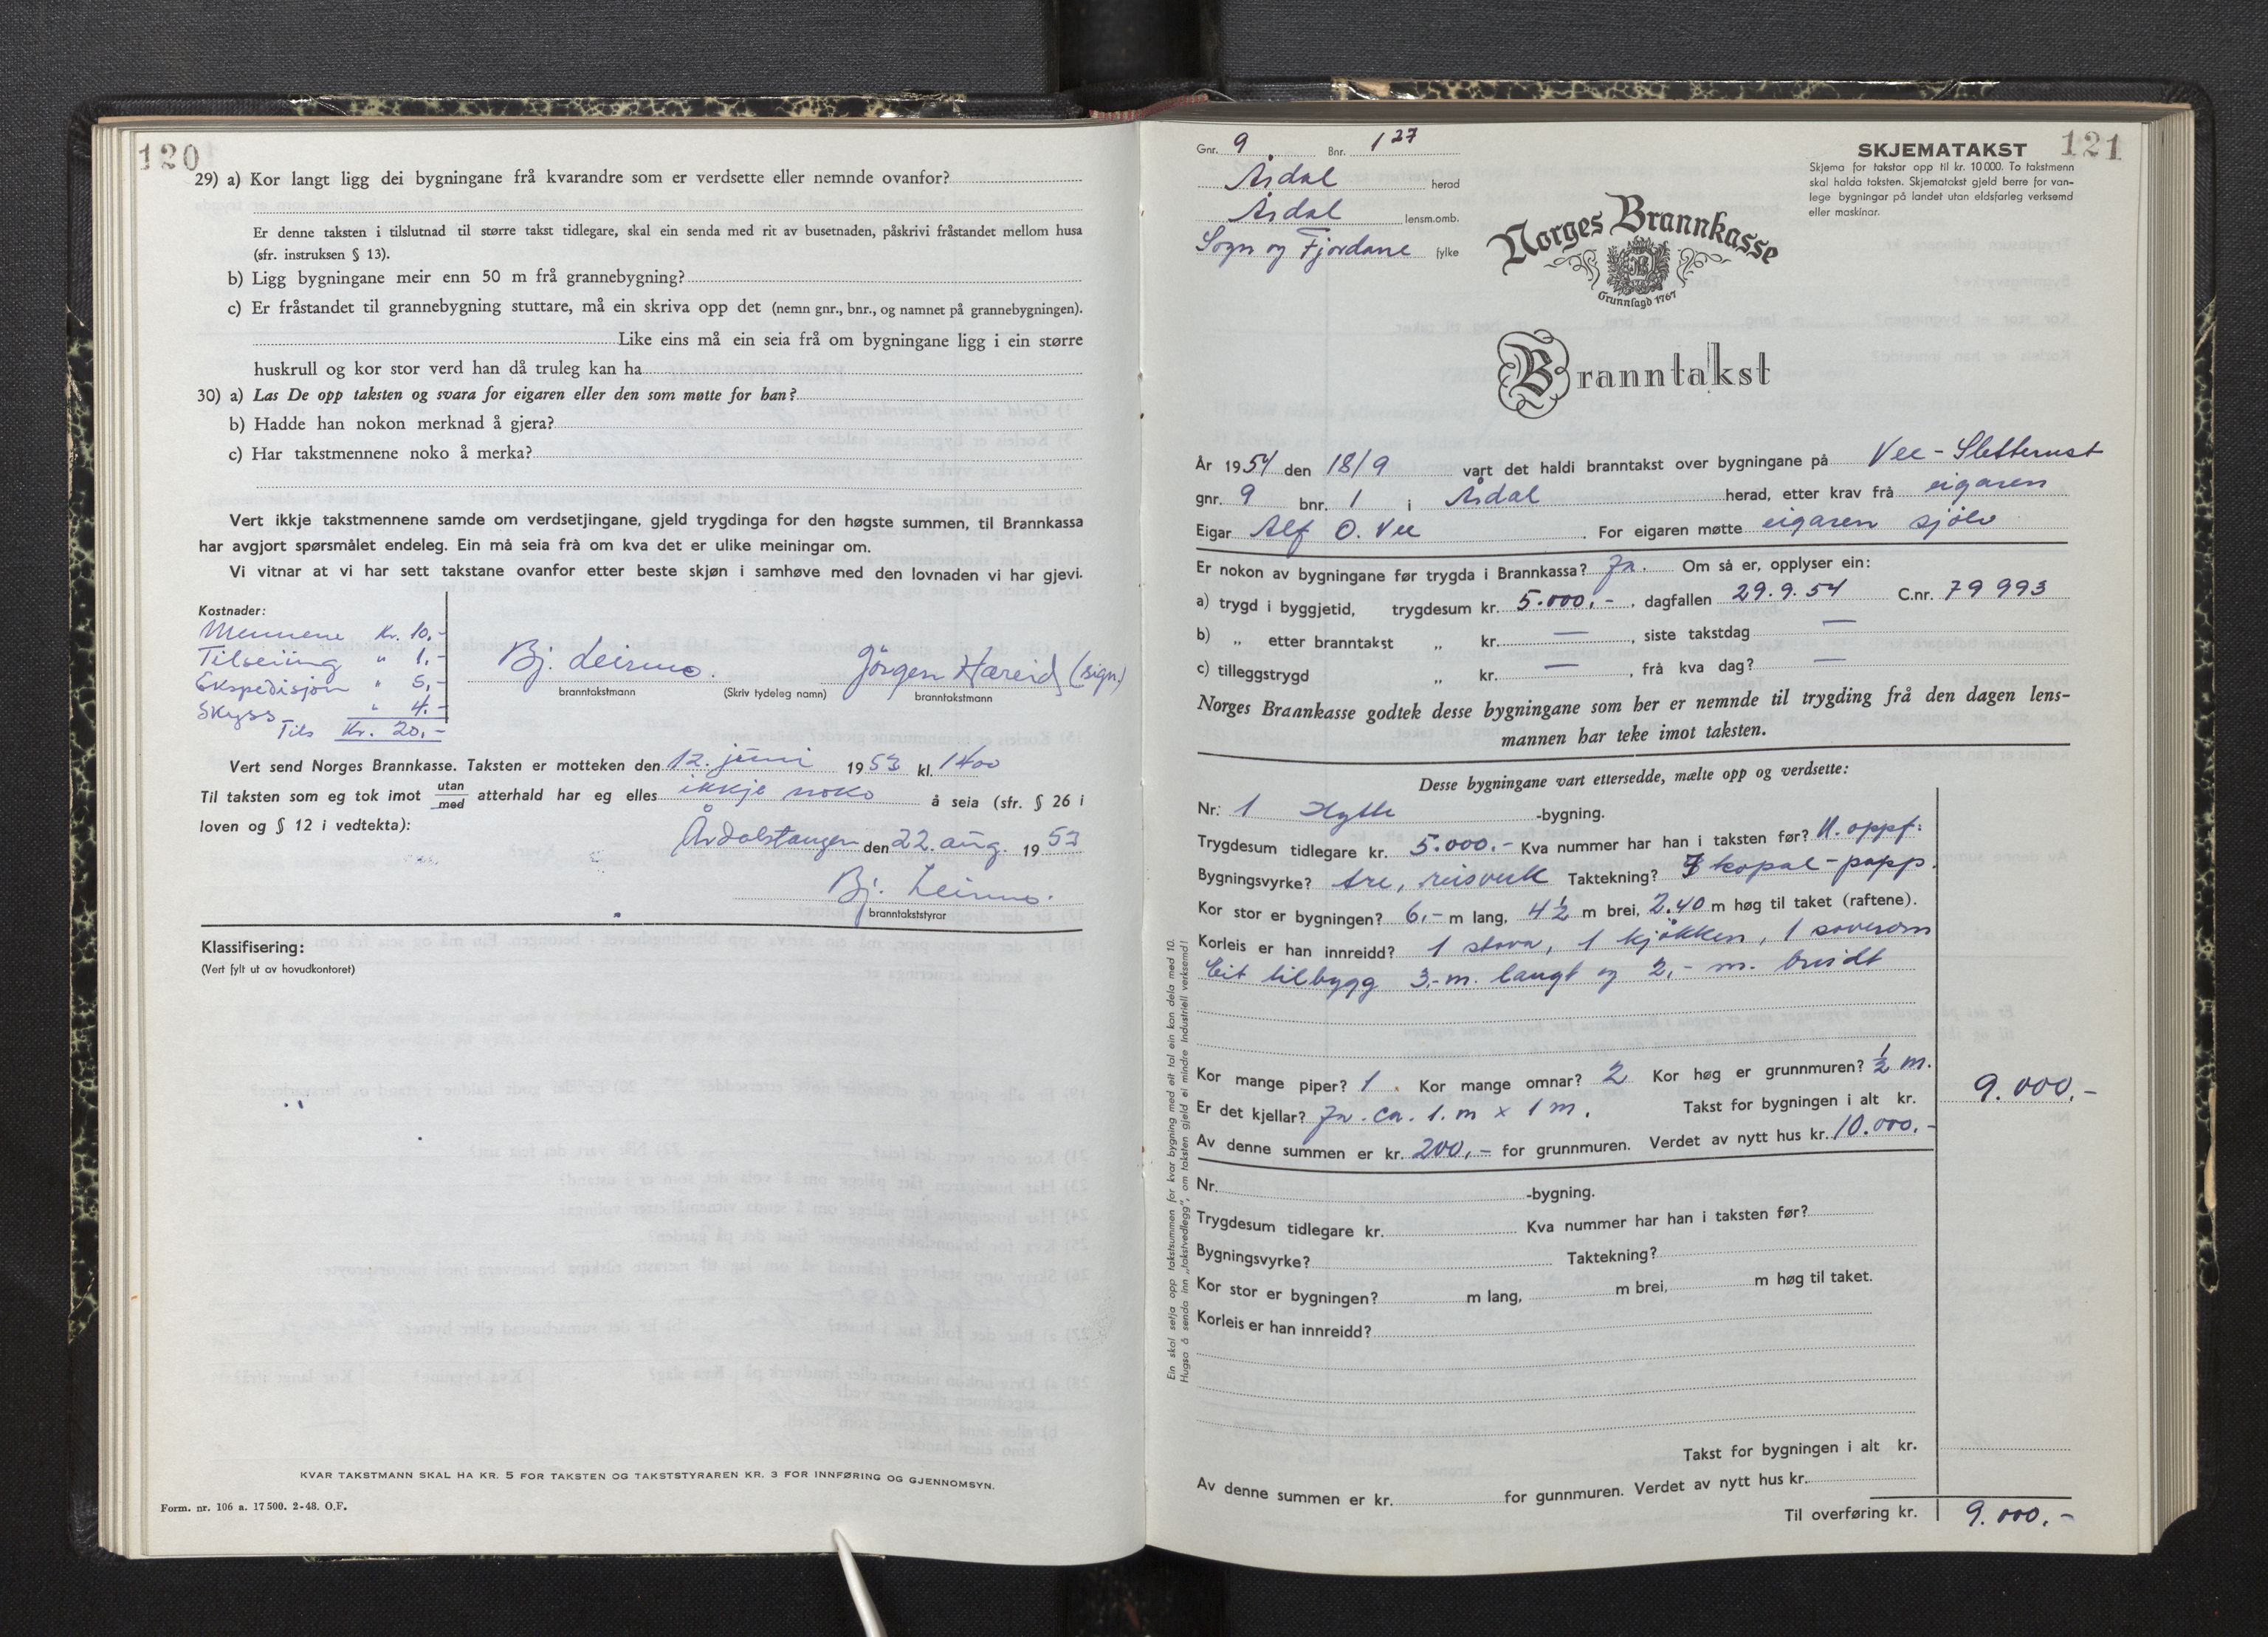 120
29) a) Kor langt ligg dei bygningane frå kvarandre som er verdsette eller nemnde ovanfor?
Er denne taksten i tilslutnad til større takst tidlegare, skal ein senda med rit av busetnaden, påskrivi fråstandet mellom husa
(sfr. instruksen § 13).
b) Ligg bygningane meir enn 50 m frå grannebygning?
c) Er fråstandet til grannebygning stuttare, må ein skriva opp det (nemn gnr., bnr., og namnet på grannebygningen).
Like eins må ein seia frå om bygningane ligg i ein større
huskrull og kor stor verd han då truleg kan ha
30) a) Las De opp taksten og svara for eigaren eller den som møtte for han?
b) Hadde han nokon merknad å gjera?
c) Har takstmennene noko å merka?
Vert ikkje takstmennene samde om verdsetjingane, gjeld trygdinga for den høgste summen, til Brannkassa
har avgjort spørsmålet endeleg. Ein må seia frå om kva det er ulike meiningar om.
Vi vitnar at vi har sett takstane ovanfor etter beste skjøn i samhøve med den lovnaden vi har gjevi.
Kostnader:
Mennene Kr. 10,-
Tilseiing " 1,-
Ekspedisjon " 5,-
Skyss " 4.-
Tils Kr. 20,-
Bj. Leirmo. Jörgen Hæreid (sign)
branntakstmann (Skriv tydeleg namn) branntakstmann
Vert send Norges Brannkasse. Taksten er motteken den 12. juni 1953 kl. 1400
Til taksten som eg tok imot utan/med atterhald har eg elles ikkje noko å seia (sfr. § 26 i
loven og § 12 i vedtekta):
Årdalstangen den 22. aug. 1953
Bj. Leirmo.
branntakststyrar
Klassifisering:
(Vert fylt ut av hovudkontoret)
KVAR TAKSTMANN SKAL HA KR. 5 FOR TAKSTEN OG TAKSTSTYRAREN KR. 3 FOR INNFØRING OG GJENNOMSYN.
Form. nr. 106 a. 17 500. 2-48. O.F.
Gnr. 9 Bnr. 127
SKJEMATAKST 121
Skjema for takstar opp til kr. 10 000. To takstmenn
skal halda taksten. Skjematakst gjeld berre for van-
lege bygningar på landet utan eldsfarleg verksemd
eller maskinar.
Årdal herad
Årdal lensm.omb.
Sogn og Fjordane fylke
Norges Brannkasse
Grunnlagd 1767
Branntakst
År 1954 den 18/9 vart det haldi branntakst over bygningane på Vee - Sletterust
gnr. 9 bnr. 1 i Årdal herad, etter krav frå eigaren
Eigar Alf O. Vee. For eigaren møtte eigaren sjölv
Er nokon av bygningane før trygda i Brannkassa? Ja. Om så er, opplyser ein:
a) trygd i byggjetid, trygdesum kr. 5.000,-, dagfallen 29.9.54 C.nr. 79 993
b) „ etter branntakst „ kr. —, siste takstdag —
c) tilleggstrygd „ kr. —, frå kva dag? —
Norges Brannkasse godtek desse bygningane som her er nemnde til trygding frå den dagen lens-
mannen har teke imot taksten.
Desse bygningane vart ettersedde, mælte opp og verdsette:
Nr. 1 Hytte -bygning.
Trygdesum tidlegare kr. 5.000.- Kva nummer har han i taksten før? N. oppf.
Bygningsvyrke? tre, reisverk Taktekning? kopal-papp.
Kor stor er bygningen? 6,- m lang, 4½ m brei, 2.40 m høg til taket (raftene).
Korleis er han innreidd? 1 stova, 1 kjökken, 1 soverom
Eit tilbygg 3,- m. langt og 2,- m. breidt
Kor mange piper? 1. Kor mange omnar? 2 Kor høg er grunnmuren? ½ m.
Er det kjellar? Ja. ca. 1. m x 1 m. Takst for bygningen i alt kr. 9.000,-
Av denne summen er kr. 200,- for grunnmuren. Verdet av nytt hus kr. 10.000.-
Nr. -bygning.
Trygdesum tidlegare kr. Kva nummer har han i taksten før?
Bygningsvyrke? Taktekning?
Kor stor er bygningen? m lang, m brei, m høg til taket.
Korleis er han innreidd?
Takst for bygningen i alt kr.
Av denne summen er kr. for gunnmuren. Verdet av nytt hus kr.
Til overføring kr. 9.000.-
Ein skal setja opp takstsummen for kvar bygning med eit tal ein kan dela med 10.
Hugsa å senda inn „takstvedlegg", om taksten gjeld ei mindre industriell verksemd!